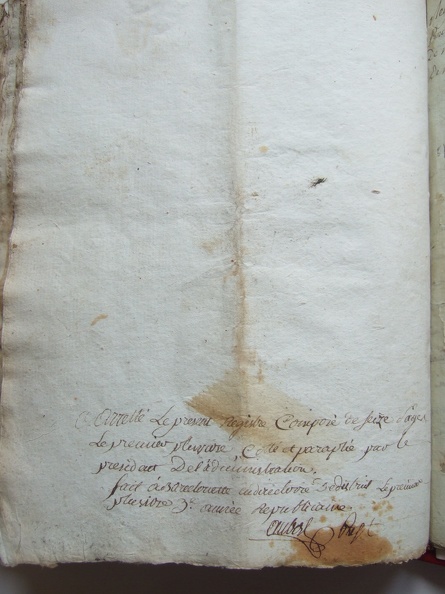 Arretté Le present Registre Composé de seize pages
Le premier pluviose, Coté et paraphé par le
president De l'administration.
fait à au directoire Le premier
pluviose année Republicaine